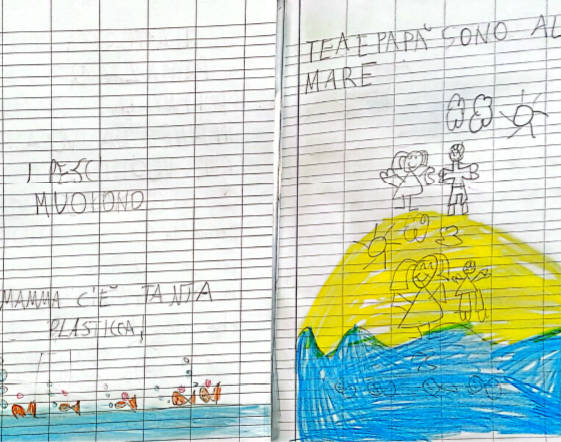 I PESCI
MUOIONO
MAMMA C'È TANTA
PLASTICCA!
TEA E PAPÀ SONO AL
MARE